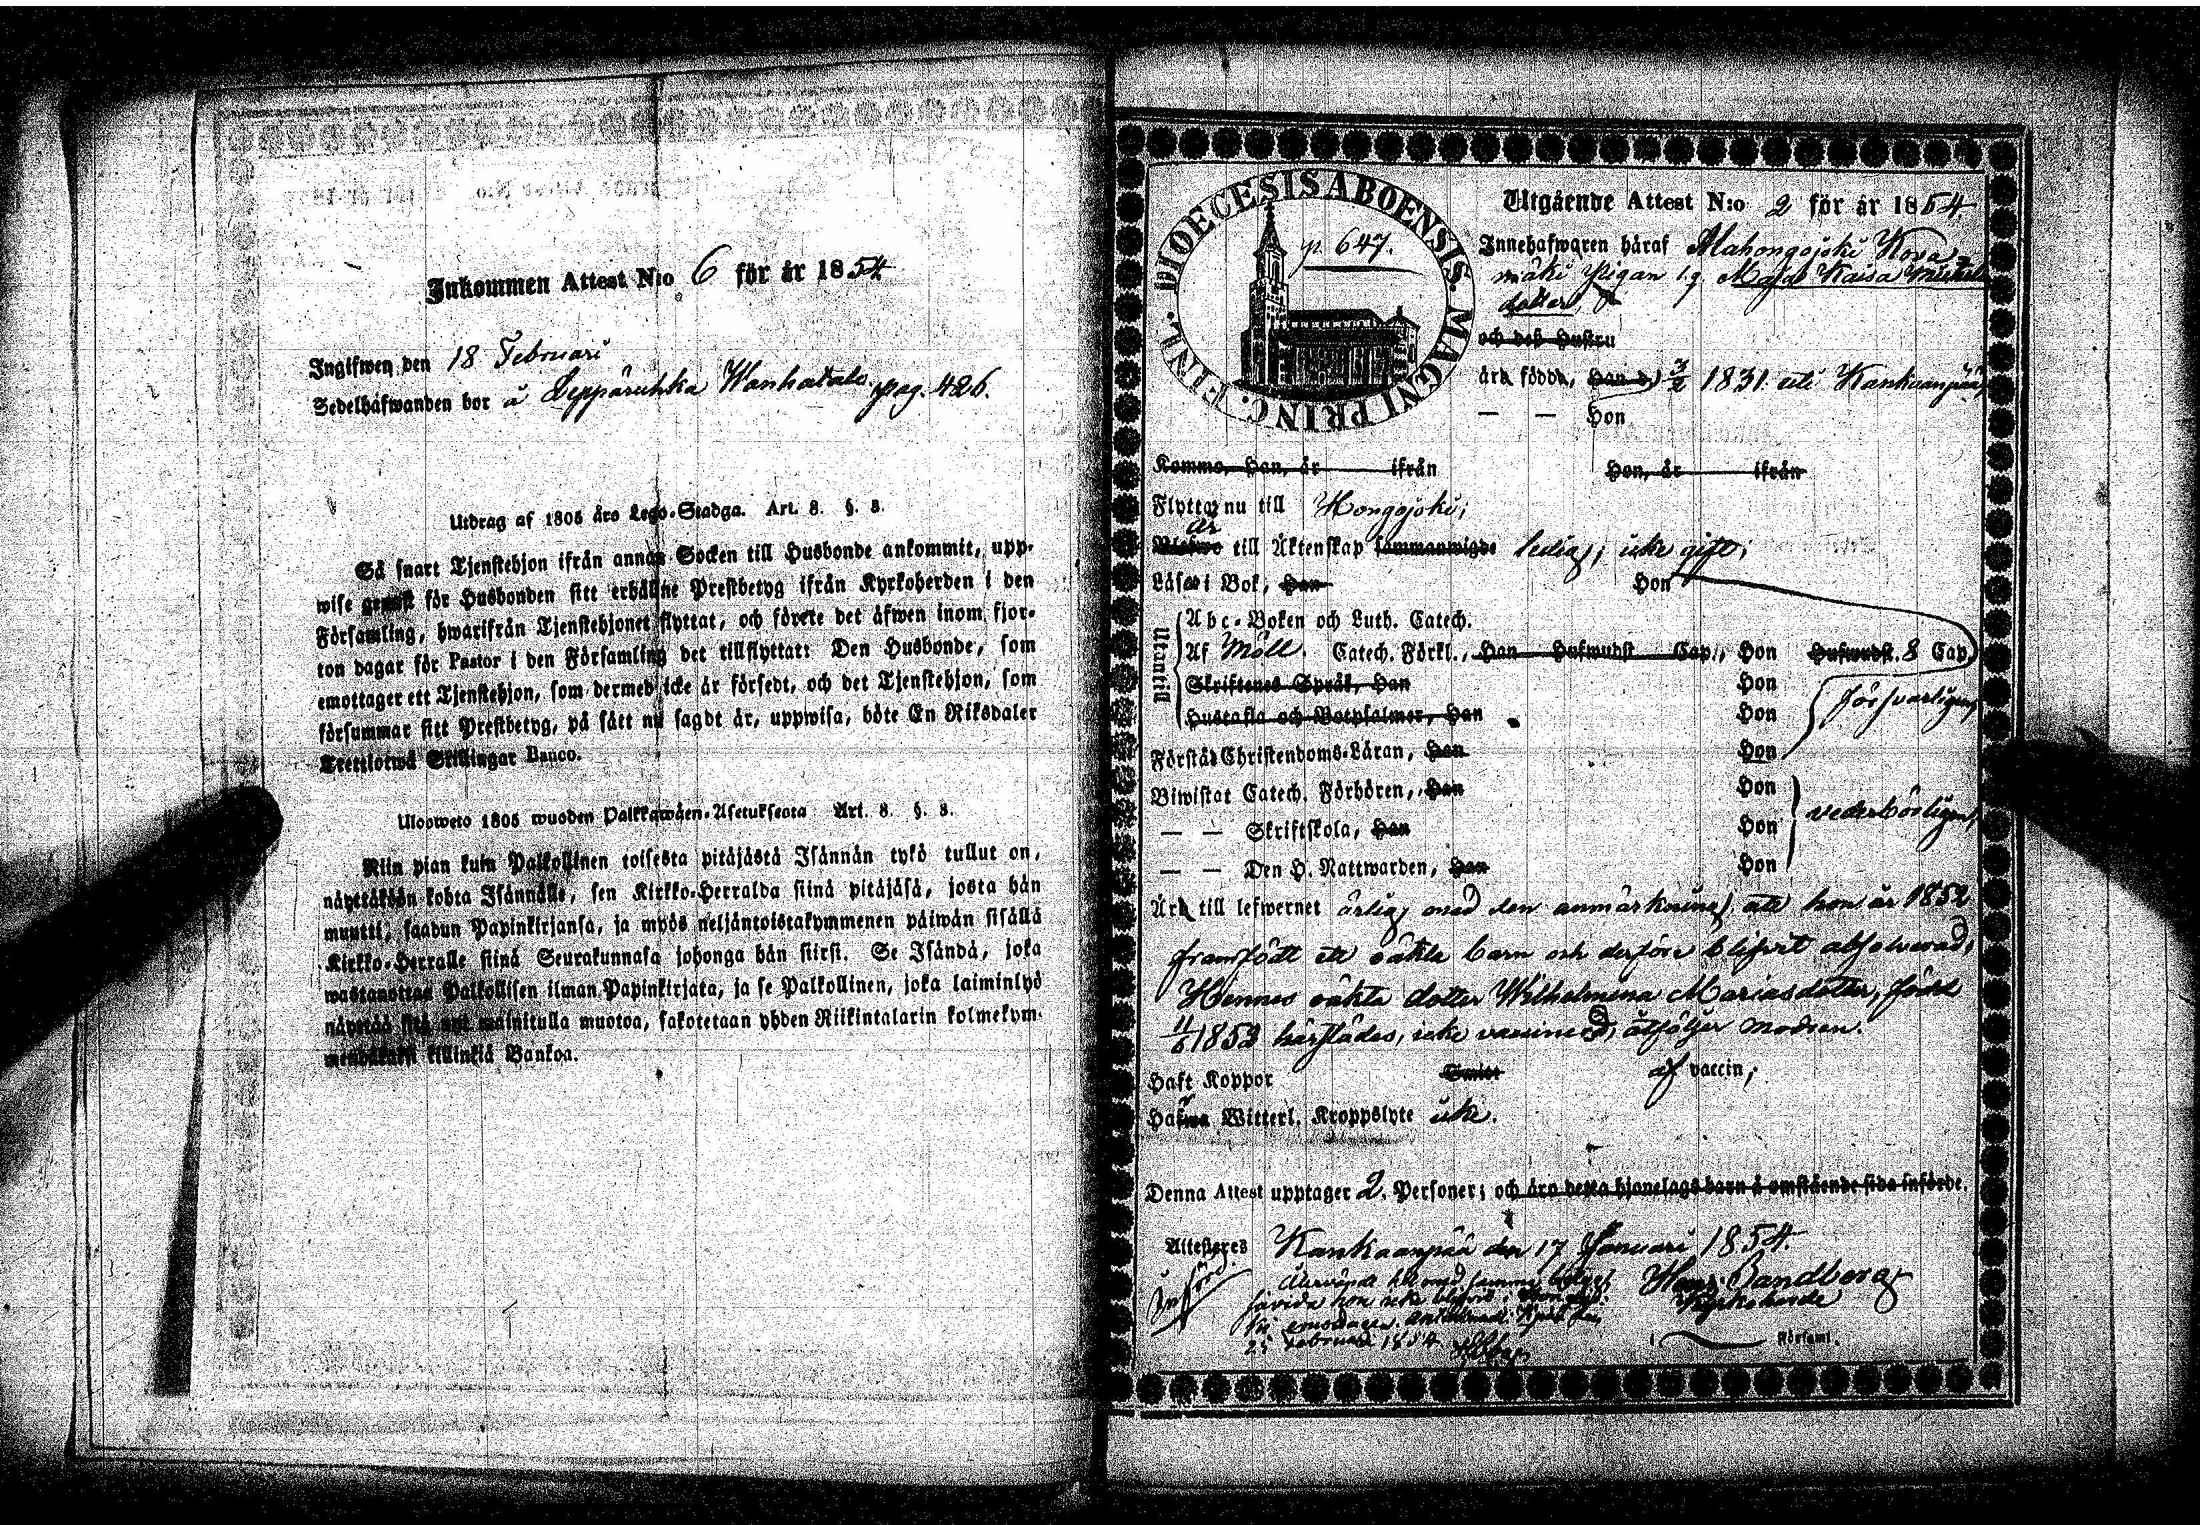 Inkommen Attest N:o 6 för år 1854
Ingifwen den 18 Februari
Sedelhafwanden bor å Leppäruhka Wanhatalo pag. 426.
Utdrag af 1805 års Lego-Stadga. Art. 8. §. 8.
Så snart Tjenstehjon ifrån annan Socken till Husbonde ankommit, upp-
wise genast för Husbonden sitt erhållne Prestbetyg ifrån Kyrkoherden i den
Församling, hwarifrån Tjenstehjonet flyttat, och förete det äfwen inom fjor-
ton dagar för Pastor i den Församling det tillflyttat: Den Husbonde, som
emottager ett Tjenstehjon, som dermed icke är försedt, och det Tjenstehjon, som
försummar sitt Prestbetyg, på sätt nu sagdt är, uppwisa, böte En Riksdaler
Trettiotwå Skillingar Banco.
Ulosweto 1805 wuoden Palkkawäen-Asetuksesta Art. 8. §. 8.
Niin pian kuin Palkollinen toisesta pitäjästä Isännän tykö tullut on,
näyttäkään kohta Isännälle, sen Kirkko-Herralda siinä pitäjäsä, josta hän
muutti, saadun Papinkirjansa, ja myös neljäntoistakymmenen päiwän sisällä
Kirkko-Herralle siinä Seurakunnasa johonga hän siirsi. Se Isändä, joka
wastanottaa Palkollisen ilman Papinkirjata, ja se Palkollinen, joka laiminlyö
näyttää sitä nyt mainitulla muotoa, sakotetaan yhden Riikintalarin kolmekym-
mendäkaksi killinkiä Bankoa.
DIOECESIS ABOENSIS. MAGNI PRINC. FINL.
p. 647.
Utgående Attest N:o 2 för år 1854.
Innehafwaren häraf Mahongojoki Kora-
mäki Pigan Maja Kaisa Michels
dotter,
och dess Hustru
äro födde, Han d. 3/2 1831. uti Kankaanpää,
— — Hon
Kommo, Han, år ifrån Hon, år ifrån
Flyttar nu till Hongojoki;
är
till Äktenskap sammanwigde ledig, icke gift;
Läser i Bok, Han Hon
Utantill
Abc-Boken och Luth. Catech.
Af Möll. Catech. Förkl., Han Hufwudst Cap., Hon Hufwudst. 8 Cap
Skriftenes Språk, Han Hon försvarligen,
Hustafla och Botpsalmer, Han Hon
Förstår Christendoms-Läran, Han Hon
Biwistat Catech. Förhören, Han Hon vederbörligen,
— — Skriftskola, Han Hon
— — Den H. Nattwarden, Han Hon
Är till lefwernet ärlig, med den anmärkning, att hon år 1852
framfödt ett oäkta barn och derföre blifvit absolverad,
Hennes oäkta dotter Wilhelmina Mariasdotter, född
1852 härstädes, icke vaccinerad, åtföljer modren.
Haft Koppor Smitt af vaccin,
Hafwa Witterl. Kroppslyte icke.
Denna Attest upptager 2. Personer; och äro detta hjonelags barn å omstående sida införde.
Attesteres Kankaanpää den 17 Januari 1854.
Införd.
Återvändt hit med samma betyg
såvida hon icke blifvit i
till emottagen.
25 Februari 1854.
Kyrkoherde
i Förfaml.